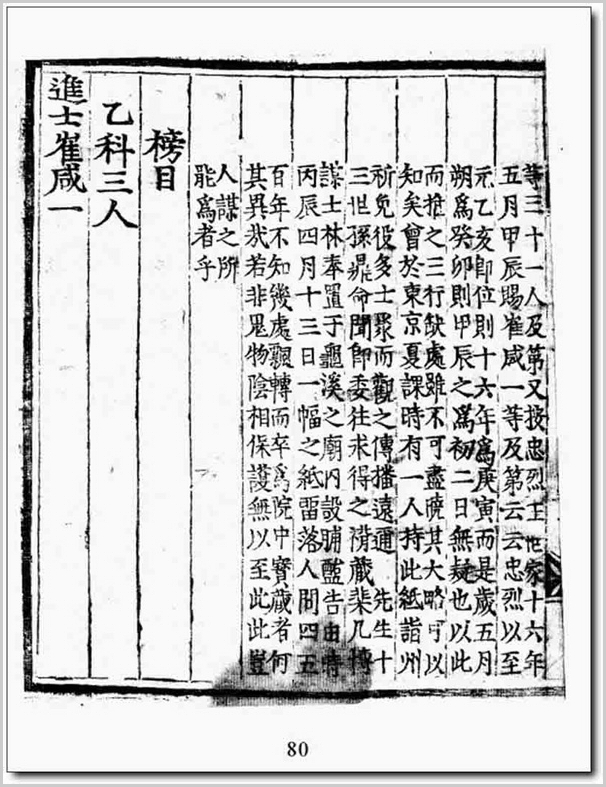 等三十一人及第又按忠烈王世家十六年
五月甲辰賜崔咸一等及第云云忠烈以至
元乙亥卽位則十六年爲庚寅而是歲五月
朔爲癸卯則甲辰之爲初二日無疑也以此
而推之三行缺處雖不可盡曉其大略可以
知矣曾於東京夏課時有一人持此紙詣州
祈免役多士聚而觀之傳播遠邇 先生十
三世孫鼎命聞卽委往求得之藏棐几轉
謀士林奉置于龜溪之廟內設脯醢告由時
丙辰四月十三日一幅之紙留落人間四五
百年不知幾處飄轉而卒爲院中寶藏者何
其異哉若非鬼物陰相保護無以至此此豈
人謀之所
能爲者乎
榜目
乙科三人
進士崔咸一
80